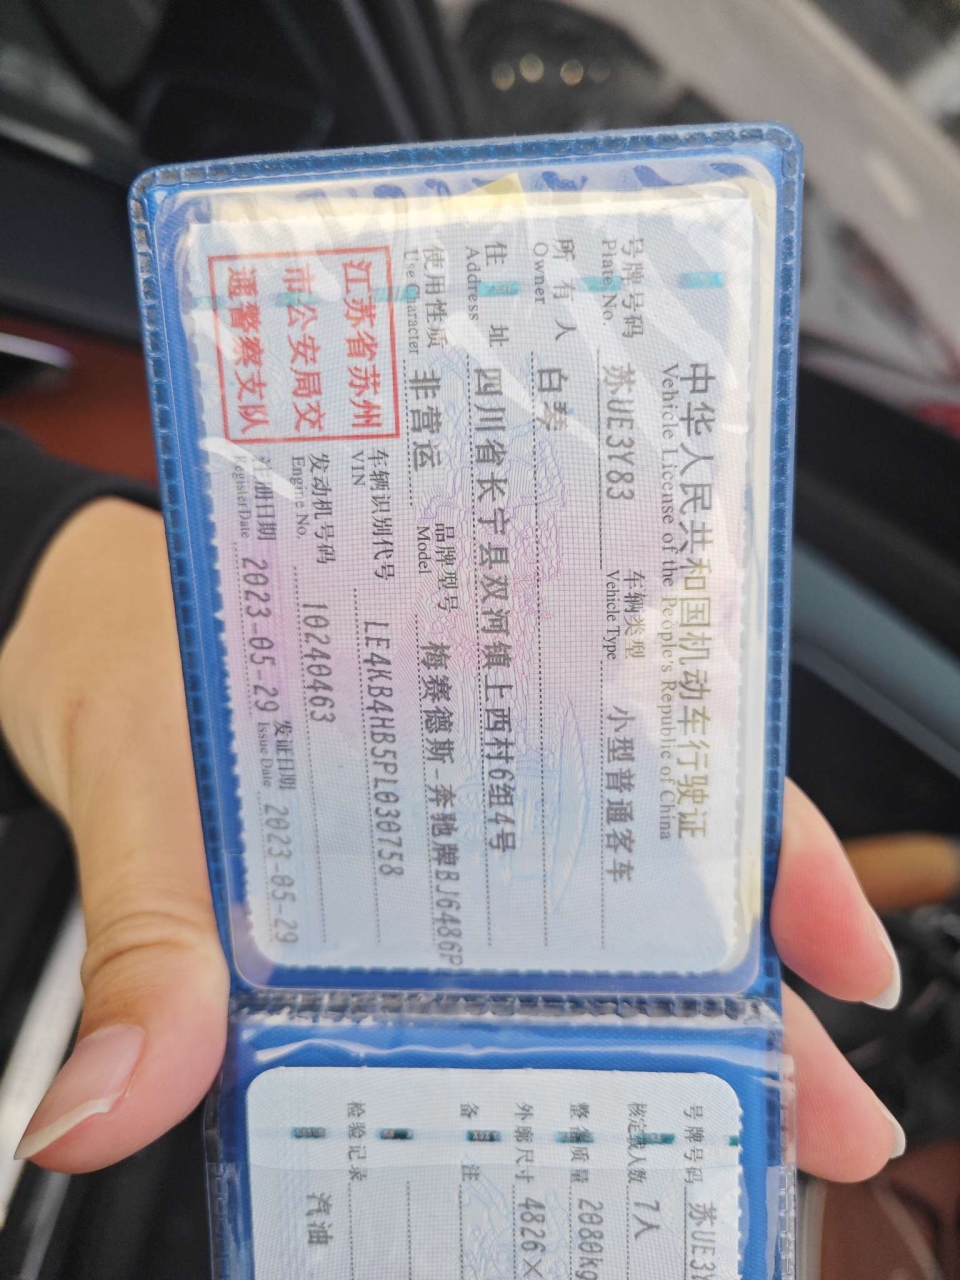 中华人民共和国机动车行驶证
Vehicle License of the People's Republic of China
号牌号码 苏UE3Y83 车辆类型 小型普通客车
Plate No. Vehicle Type
所有人 白
Owner
住址 四川省长宁县双河镇上西村6组4号
Address
使用性质 非营运 品牌型号 梅赛德斯-奔驰牌BJ6486P
Use Character Model
江苏省苏州
市公安局交
通警察支队
车辆识别代号 LE4KB4HB5PL030758
VIN
发动机号码 10240463
Engine No.
注册日期 2023-05-29 发证日期 2023-05-29
Register Date Issue Date
号牌号码 苏UE3
核定载人数 7人
整备质量 2080kg
外廓尺寸 4826×
备注
检验记录
汽油